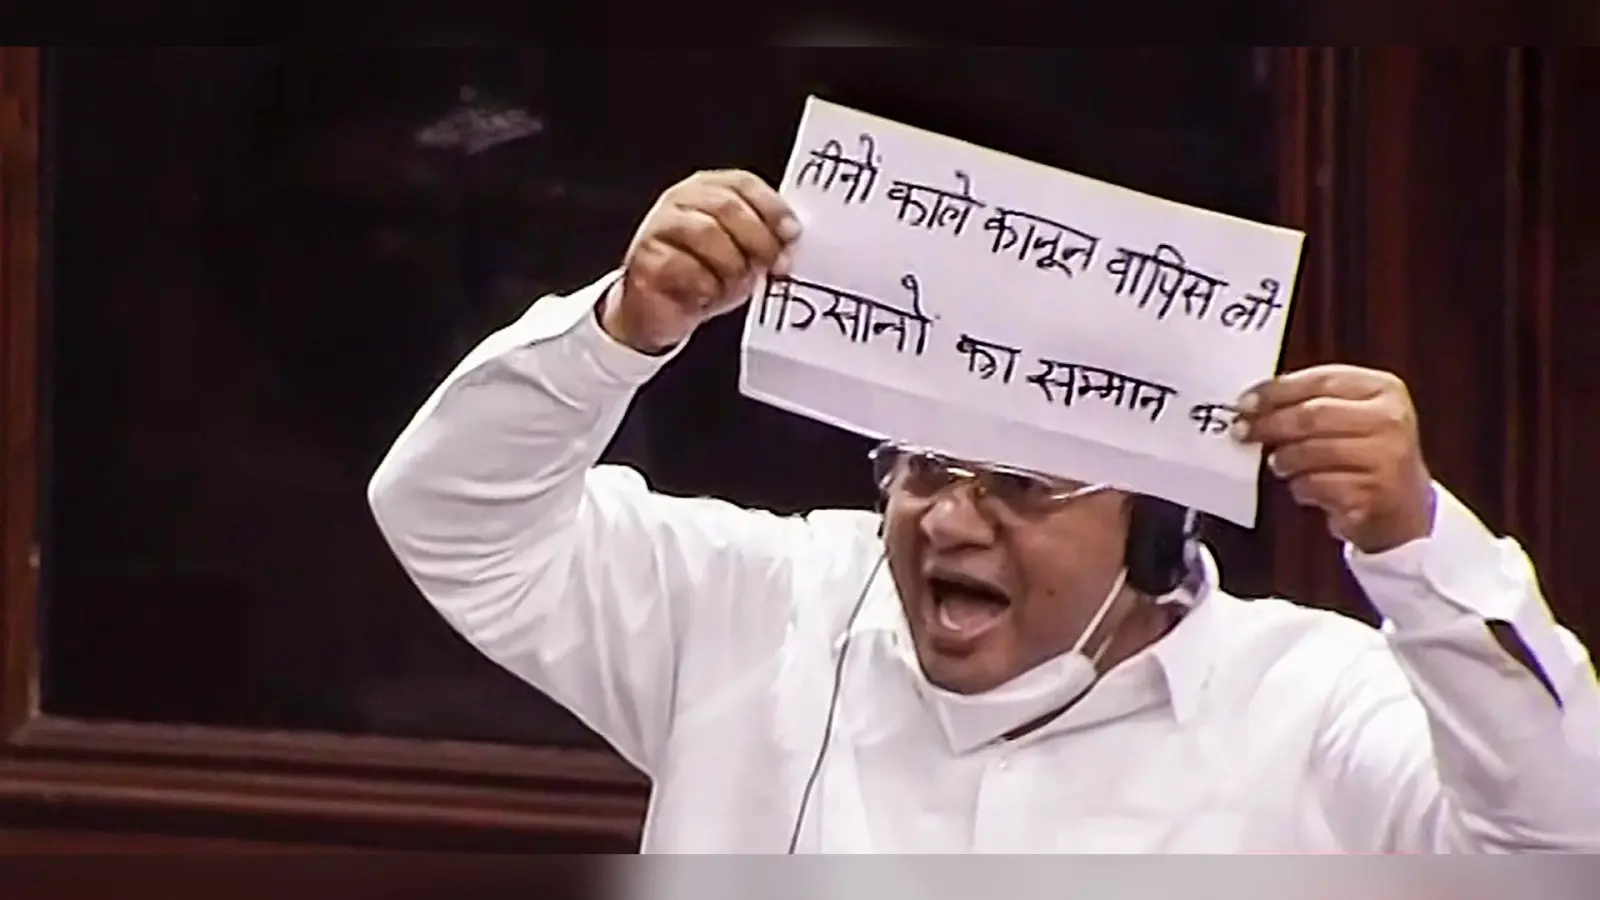 तीनों काले कानून वापिस लो
किसानो का सम्मान